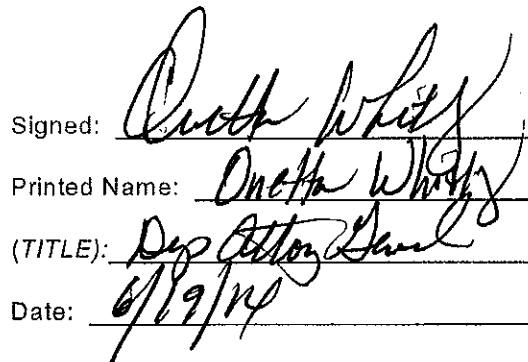 Signed: Onetta Whitby
Printed Name: Onetta Whitby
(TITLE): Dep Attoy General
Date: 6/19/14